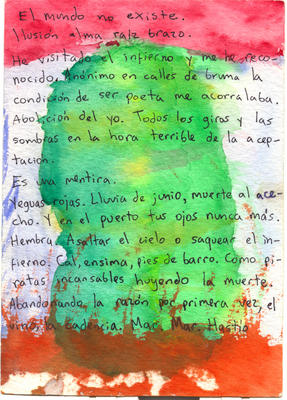 El mundo no existe.
Ilusión alma raíz brazo.
He visitado el infierno y me he reco-
nocido. Anónimo en calles de bruma la
condición de ser poeta me acorralaba.
Abolición del yo. Todos los giros y las
sombras en la hora terrible de la acep-
tación.
Es una mentira.
Yeguas rojas. Lluvia de junio, muerte al ace-
cho. Y en el puerto tus ojos nunca más.
Hembra. Asaltar el cielo o saquear el in-
fierno. Cal, ensima, pies de barro. Como pi-
ratas incansables huyendo la muerte.
Abandonando la razón por primera vez, el
vino, la cadencia. Mar. Mar. Hastío